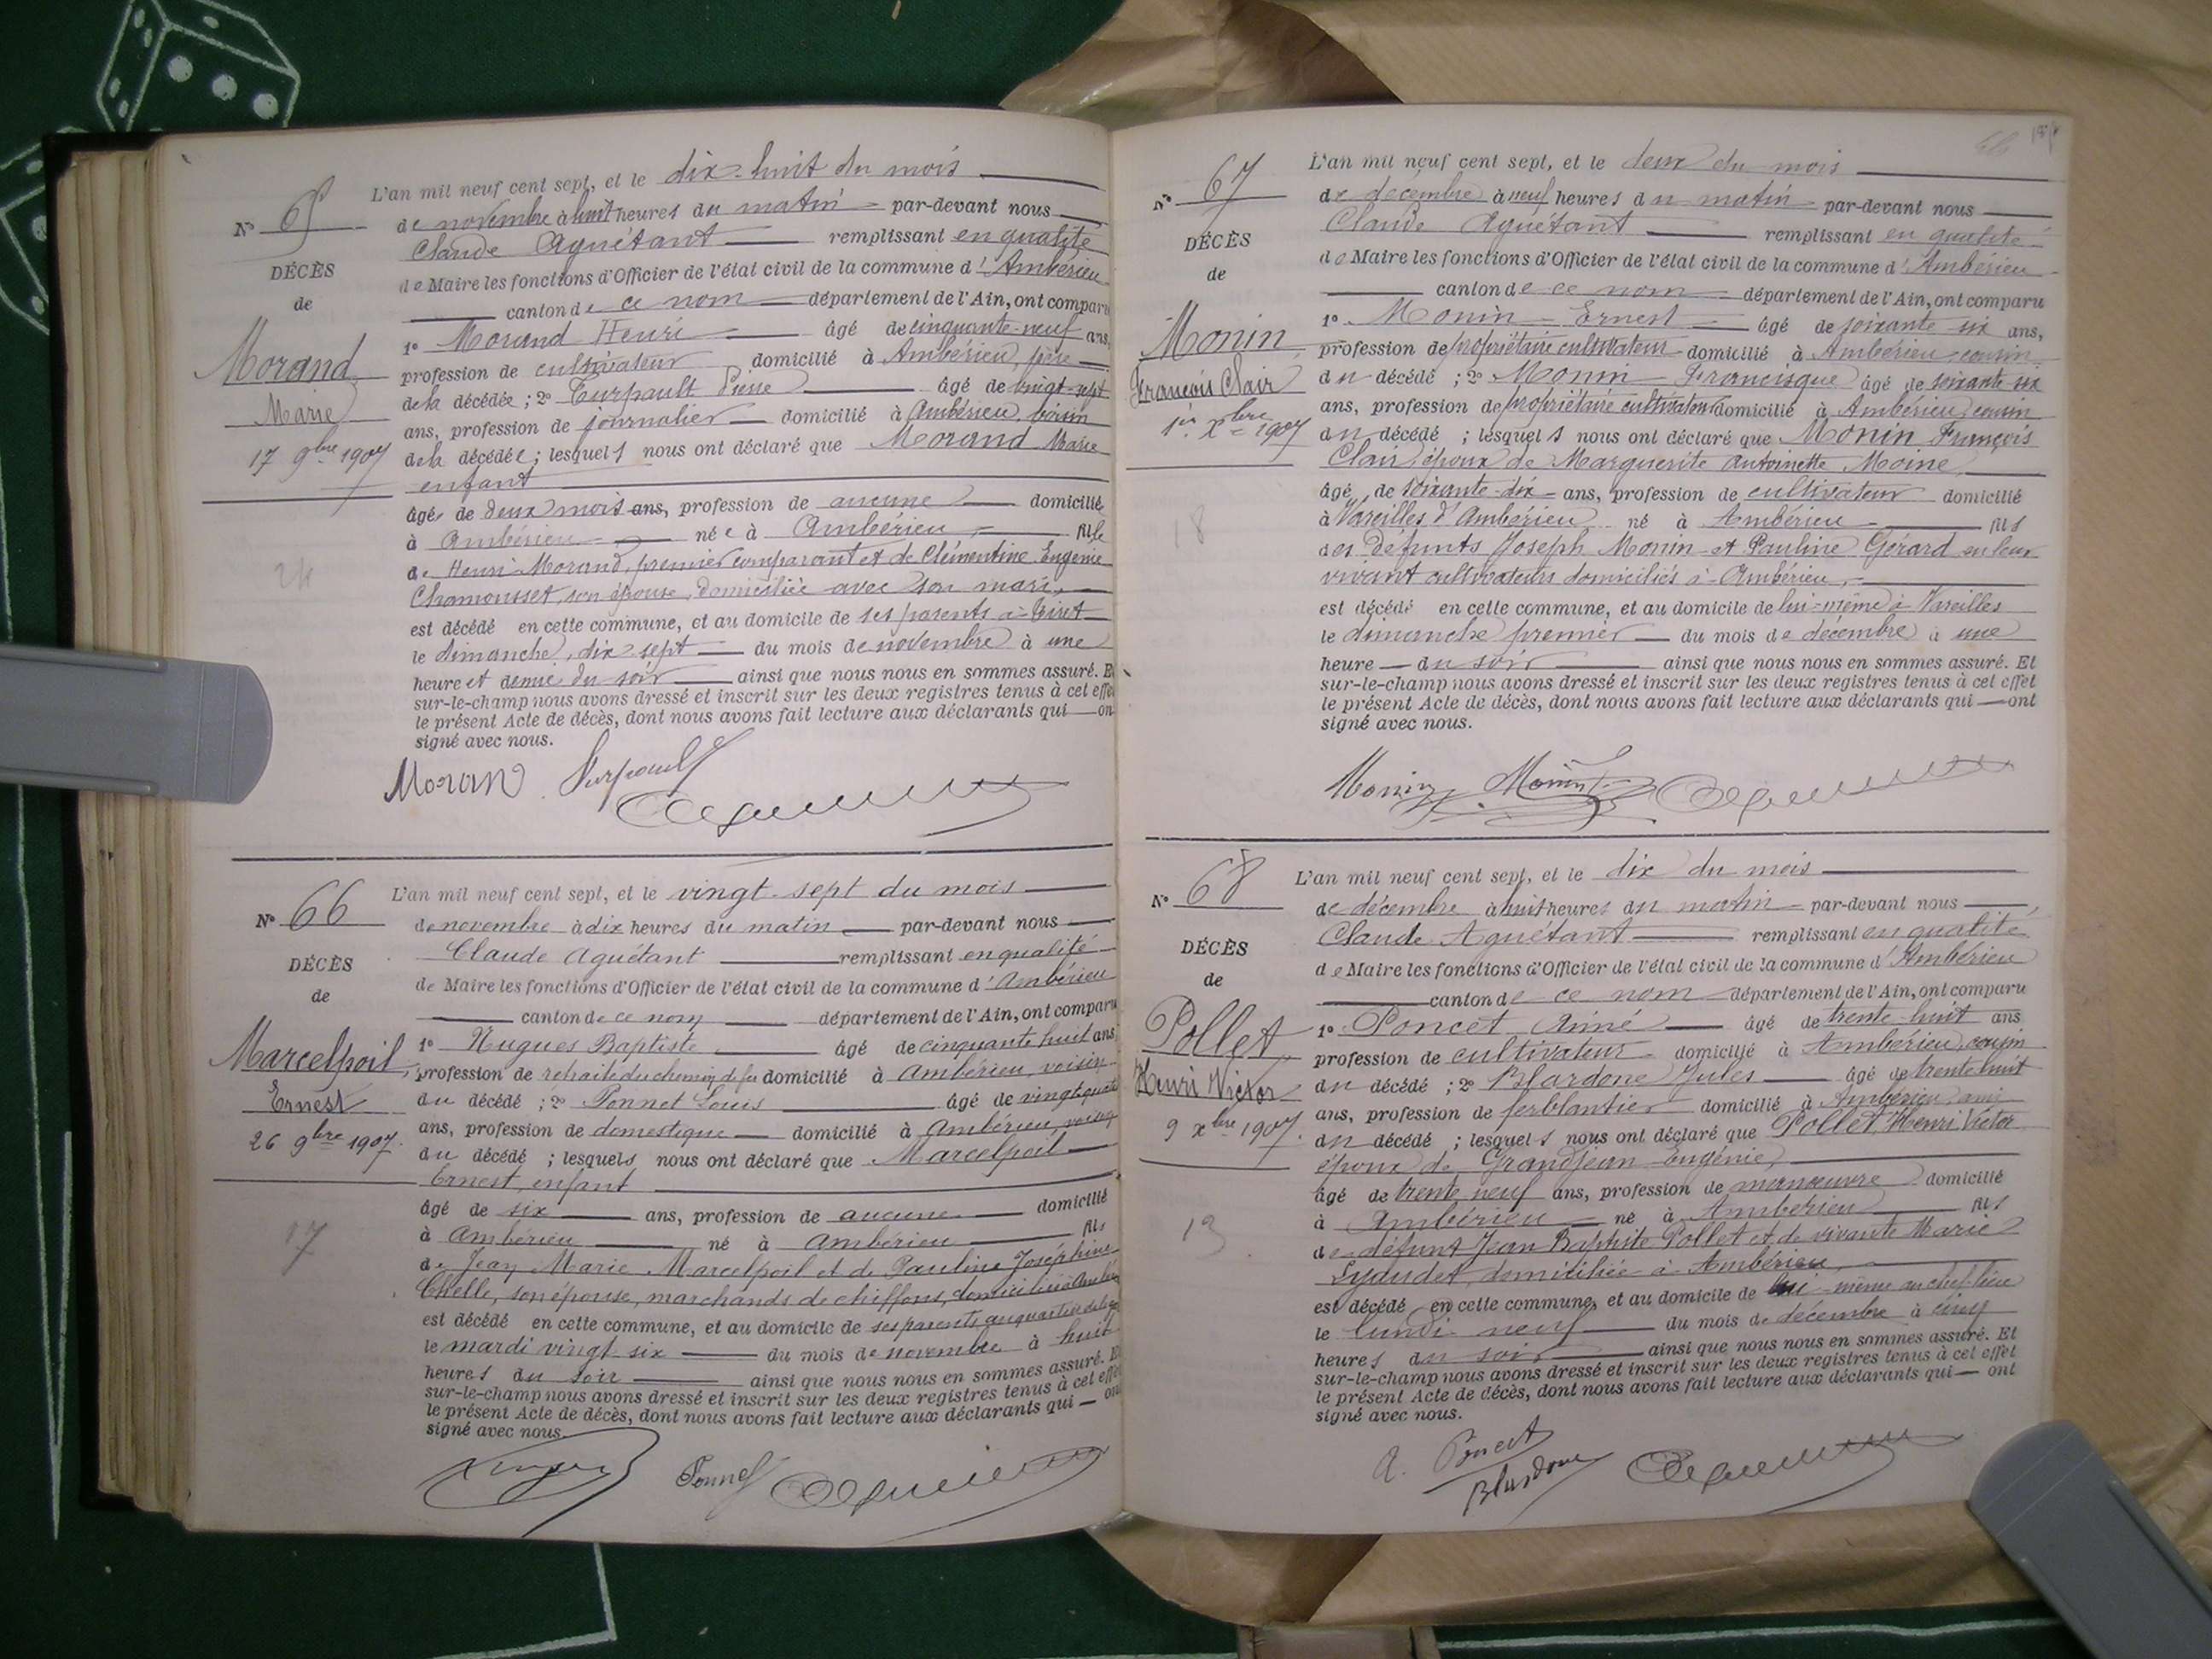 N° 65
DÉCÈS
de
Morand
Marie
17 9bre 1907
24
L'an mil neuf cent sept, et le dix-huit du mois
de novembre à huit heures du matin par-devant nous
Claude Aguétant remplissant en qualité
de Maire les fonctions d'Officier de l'état civil de la commune d'Ambérieu
canton de ce nom département de l'Ain, ont comparu
1° Morand Henri âgé de cinquante-neuf ans,
profession de cultivateur domicilié à Ambérieu, père
de la décédée ; 2° Turpault Pierre âgé de vingt-sept
ans, profession de journalier domicilié à Ambérieu, voisin
de la décédée ; lesquels nous ont déclaré que Morand Marie
enfant
âgée de deux mois ans, profession de aucune domicilié
à Ambérieu née à Ambérieu fille
de Henri Morand, premier comparant et de Clémentine Eugénie
Chamousset, son épouse, domiciliée avec son mari,
est décédé en cette commune, et au domicile de ses parents à Tiret
le dimanche, dix-sept du mois de novembre à une
heure et demie du soir ainsi que nous nous en sommes assuré. Et
sur-le-champ nous avons dressé et inscrit sur les deux registres tenus à cet effet
le présent Acte de décès, dont nous avons fait lecture aux déclarants qui ont
signé avec nous.
Moran Turpault
N° 66
DÉCÈS
de
Marcelpoil
Ernest
26 9bre 1907.
17
L'an mil neuf cent sept, et le vingt-sept du mois
de novembre à dix heures du matin par-devant nous
Claude Aguétant remplissant en qualité
de Maire les fonctions d'Officier de l'état civil de la commune d'Ambérieu
canton de ce nom département de l'Ain, ont comparu
1° Hugues Baptiste âgé de cinquante huit ans,
profession de retraité du chemin de fer domicilié à Ambérieu, voisin
du décédé ; 2° Ponnet Louis âgé de vingt quatre
ans, profession de domestique domicilié à Ambérieu, voisin
du décédé ; lesquels nous ont déclaré que Marcelpoil
Ernest, enfant
âgé de six ans, profession de aucune domicilié
à Ambérieu né à Ambérieu fils
de Jean Marie Marcelpoil et de Pauline Joséphine
Chelle, son épouse, marchands de chiffons, domiciliés à
est décédé en cette commune, et au domicile de ses parents, au quartier de la
le mardi vingt-six du mois de novembre à huit
heures du soir ainsi que nous nous en sommes assuré. Et
sur-le-champ nous avons dressé et inscrit sur les deux registres tenus à cet effet
le présent Acte de décès, dont nous avons fait lecture aux déclarants qui ont
signé avec nous.
Ponnet
N° 67
DÉCÈS
de
Monin
François Clair
1er Xbre 1907
18
L'an mil neuf cent sept, et le deux du mois
de décembre à neuf heures du matin par-devant nous
Claude Aguétant remplissant en qualité
de Maire les fonctions d'Officier de l'état civil de la commune d'Ambérieu
canton de ce nom département de l'Ain, ont comparu
1° Monin Ernest âgé de soixante six ans,
profession de propriétaire cultivateur domicilié à Ambérieu cousin
du décédé ; 2° Monin Francisque âgé de soixante-six
ans, profession de propriétaire cultivateur domicilié à Ambérieu, cousin
du décédé ; lesquels nous ont déclaré que Monin François
Clair, époux de Marguerite Antoinette Moine
âgé de soixante-dix ans, profession de cultivateur domicilié
à Vareilles d'Ambérieu né à Ambérieu fils
des défunts Joseph Monin et Pauline Gérard en leur
vivant cultivateurs domiciliés à Ambérieu,
est décédé en cette commune, et au domicile de lui-même à Vareilles
le dimanche premier du mois de décembre à une
heure du soir ainsi que nous nous en sommes assuré. Et
sur-le-champ nous avons dressé et inscrit sur les deux registres tenus à cet effet
le présent Acte de décès, dont nous avons fait lecture aux déclarants qui ont
signé avec nous.
Monin Monin
N° 68
DÉCÈS
de
Pollet
Henri Victor
9 Xbre 1907.
L'an mil neuf cent sept, et le dix du mois
de décembre à huit heures du matin par-devant nous
Claude Aguétant remplissant en qualité
de Maire les fonctions d'Officier de l'état civil de la commune d'Ambérieu
canton de ce nom département de l'Ain, ont comparu
1° Poncet Aimé âgé de trente-huit ans
profession de cultivateur domicilié à Ambérieu, cousin
du décédé ; 2° Blardone Jules âgé de trente huit
ans, profession de ferblantier domicilié à Ambérieu ami
du décédé ; lesquels nous ont déclaré que Pollet, Henri Victor
époux de Grandjean Eugénie,
âgé de trente neuf ans, profession de manœuvre domicilié
à Ambérieu né à Ambérieu fils
de défunt Jean Baptiste Pollet et de vivante Marie
Lyaudet, domiciliée à Ambérieu,
est décédé en cette commune, et au domicile de lui-même au chef-lieu
le lundi neuf du mois de décembre à cinq
heures du soir ainsi que nous nous en sommes assuré. Et
sur-le-champ nous avons dressé et inscrit sur les deux registres tenus à cet effet
le présent Acte de décès, dont nous avons fait lecture aux déclarants qui ont
signé avec nous.
A. Poncet
Blardone